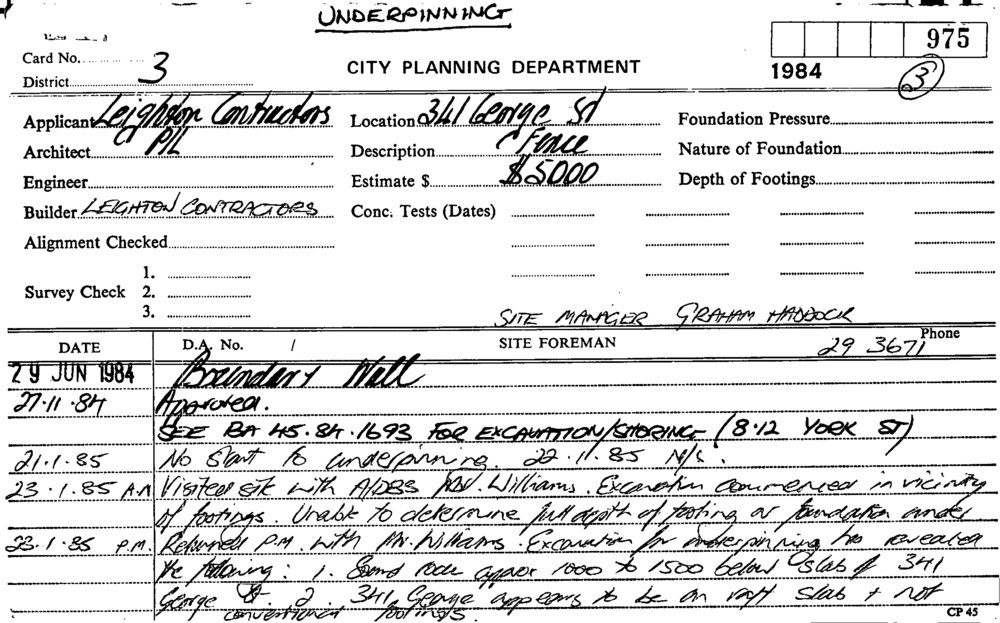 UNDERPINNING
975
Card No. 3
CITY PLANNING DEPARTMENT
1984 3
District
Applicant Leighton Contractors P/L Location 341 George St Foundation Pressure
Architect Description Fence Nature of Foundation
Engineer Estimate $ $5000 Depth of Footings
Builder LEIGHTON CONTRACTORS Conc. Tests (Dates)
Alignment Checked
1.
Survey Check 2.
3.
SITE MANAGER GRAHAM HADDOCK
DATE D.A. No. / SITE FOREMAN 29 3671 Phone
29 JUN 1984 Boundary Wall
27.11.84 Approved.
SEE BA 45.84.1693 FOR EXCAVATION/SHORING (8.12 YORK ST)
21.1.85 No Start to underpinning. 22.11.85 N/S.
23.1.85 A.M Visited site with A/DBS Mr. Williams. Excavation commenced in vicinity
of footings. Unable to determine full depth of footing or foundation under
23.1.85 P.M. Returned P.M. with Mr. Williams. Excavation for underpinning has revealed
the following: 1. Sound rock approx 1000 to 1500 below slab of 341
George & 2 341 George appears to be on raft slab + not
conventional footings
CP 45